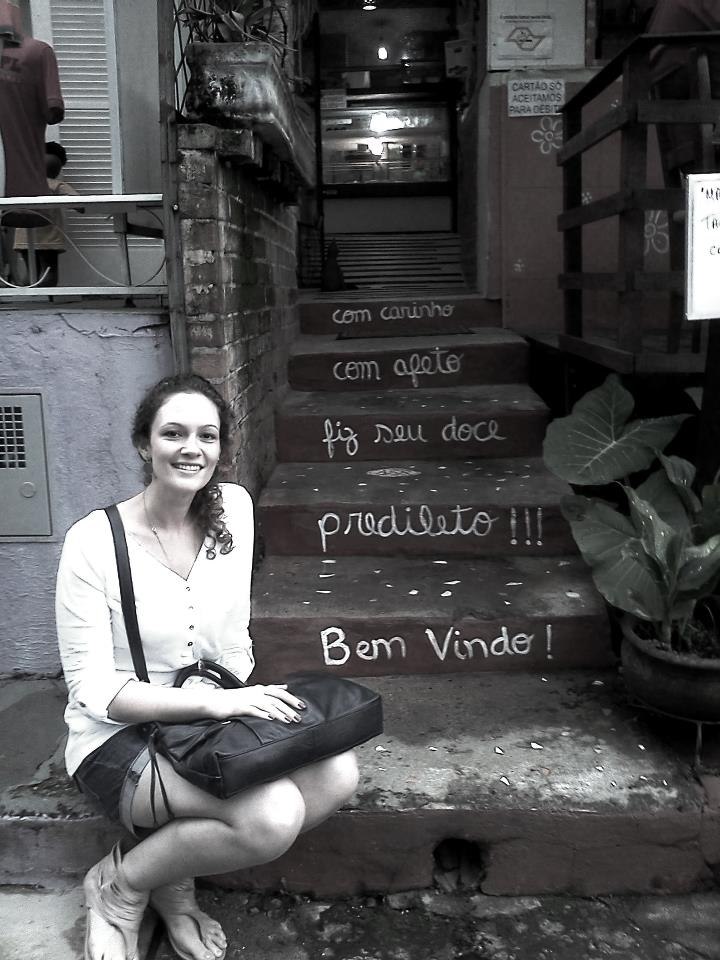 CARTÃO SÓ
ACEITAMOS
PARA DÉBITO
com carinho
com afeto
fiz seu doce
predileto !!!
Bem Vindo!